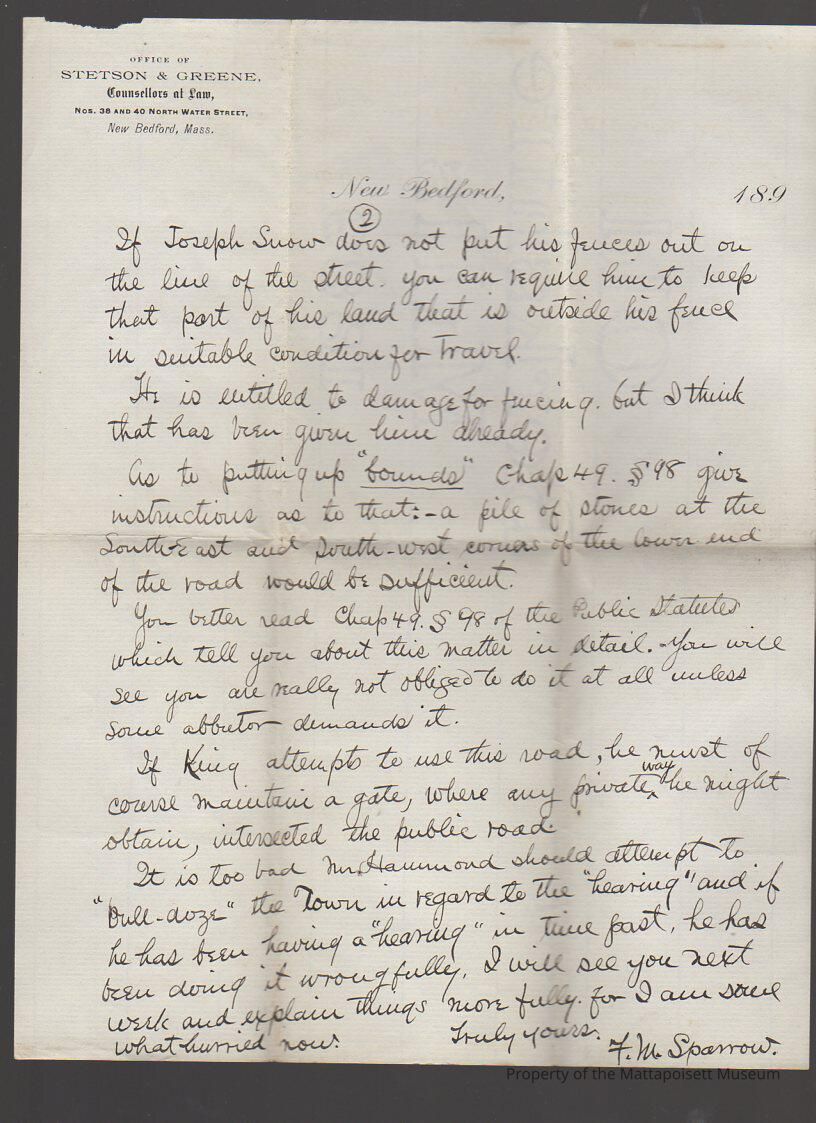 OFFICE OF
STETSON & GREENE,
Counsellors at Law,
Nos. 38 AND 40 NORTH WATER STREET,
New Bedford, Mass.
New Bedford, 189
2
If Joseph Snow does not put his fences out on
the line of the street. you can require him to keep
that part of his land that is outside his fence
in suitable condition for Travel.
He is entitled to damage for fencing. but I think
that has been given him already.
As to putting up "bounds" Chap 49. § 98 give
instructions as to that:- a pile of stones at the
South-East and South-west corners of the lower end
of the road would be sufficient.
You better read Chap 49. § 98 of the Public Statutes
which tell you about this matter in detail. - You will
see you are really not obliged to do it at all unless
some abbutor demands it.
If King attempts to use this road, he must of
course maintain a gate, where any private way he might
obtain, intersected the public road.
It is too bad Mr. Hammond should attempt to
"bull-doze" the Town in regard to the "hearing" and if
he has been having a "hearing" in time past, he has
been doing it wrongfully. I will see you next
week and explain things more fully. for I am some
what hurried now.
Truly yours.
F. M. Sparrow.
Property of the Mattapoisett Museum